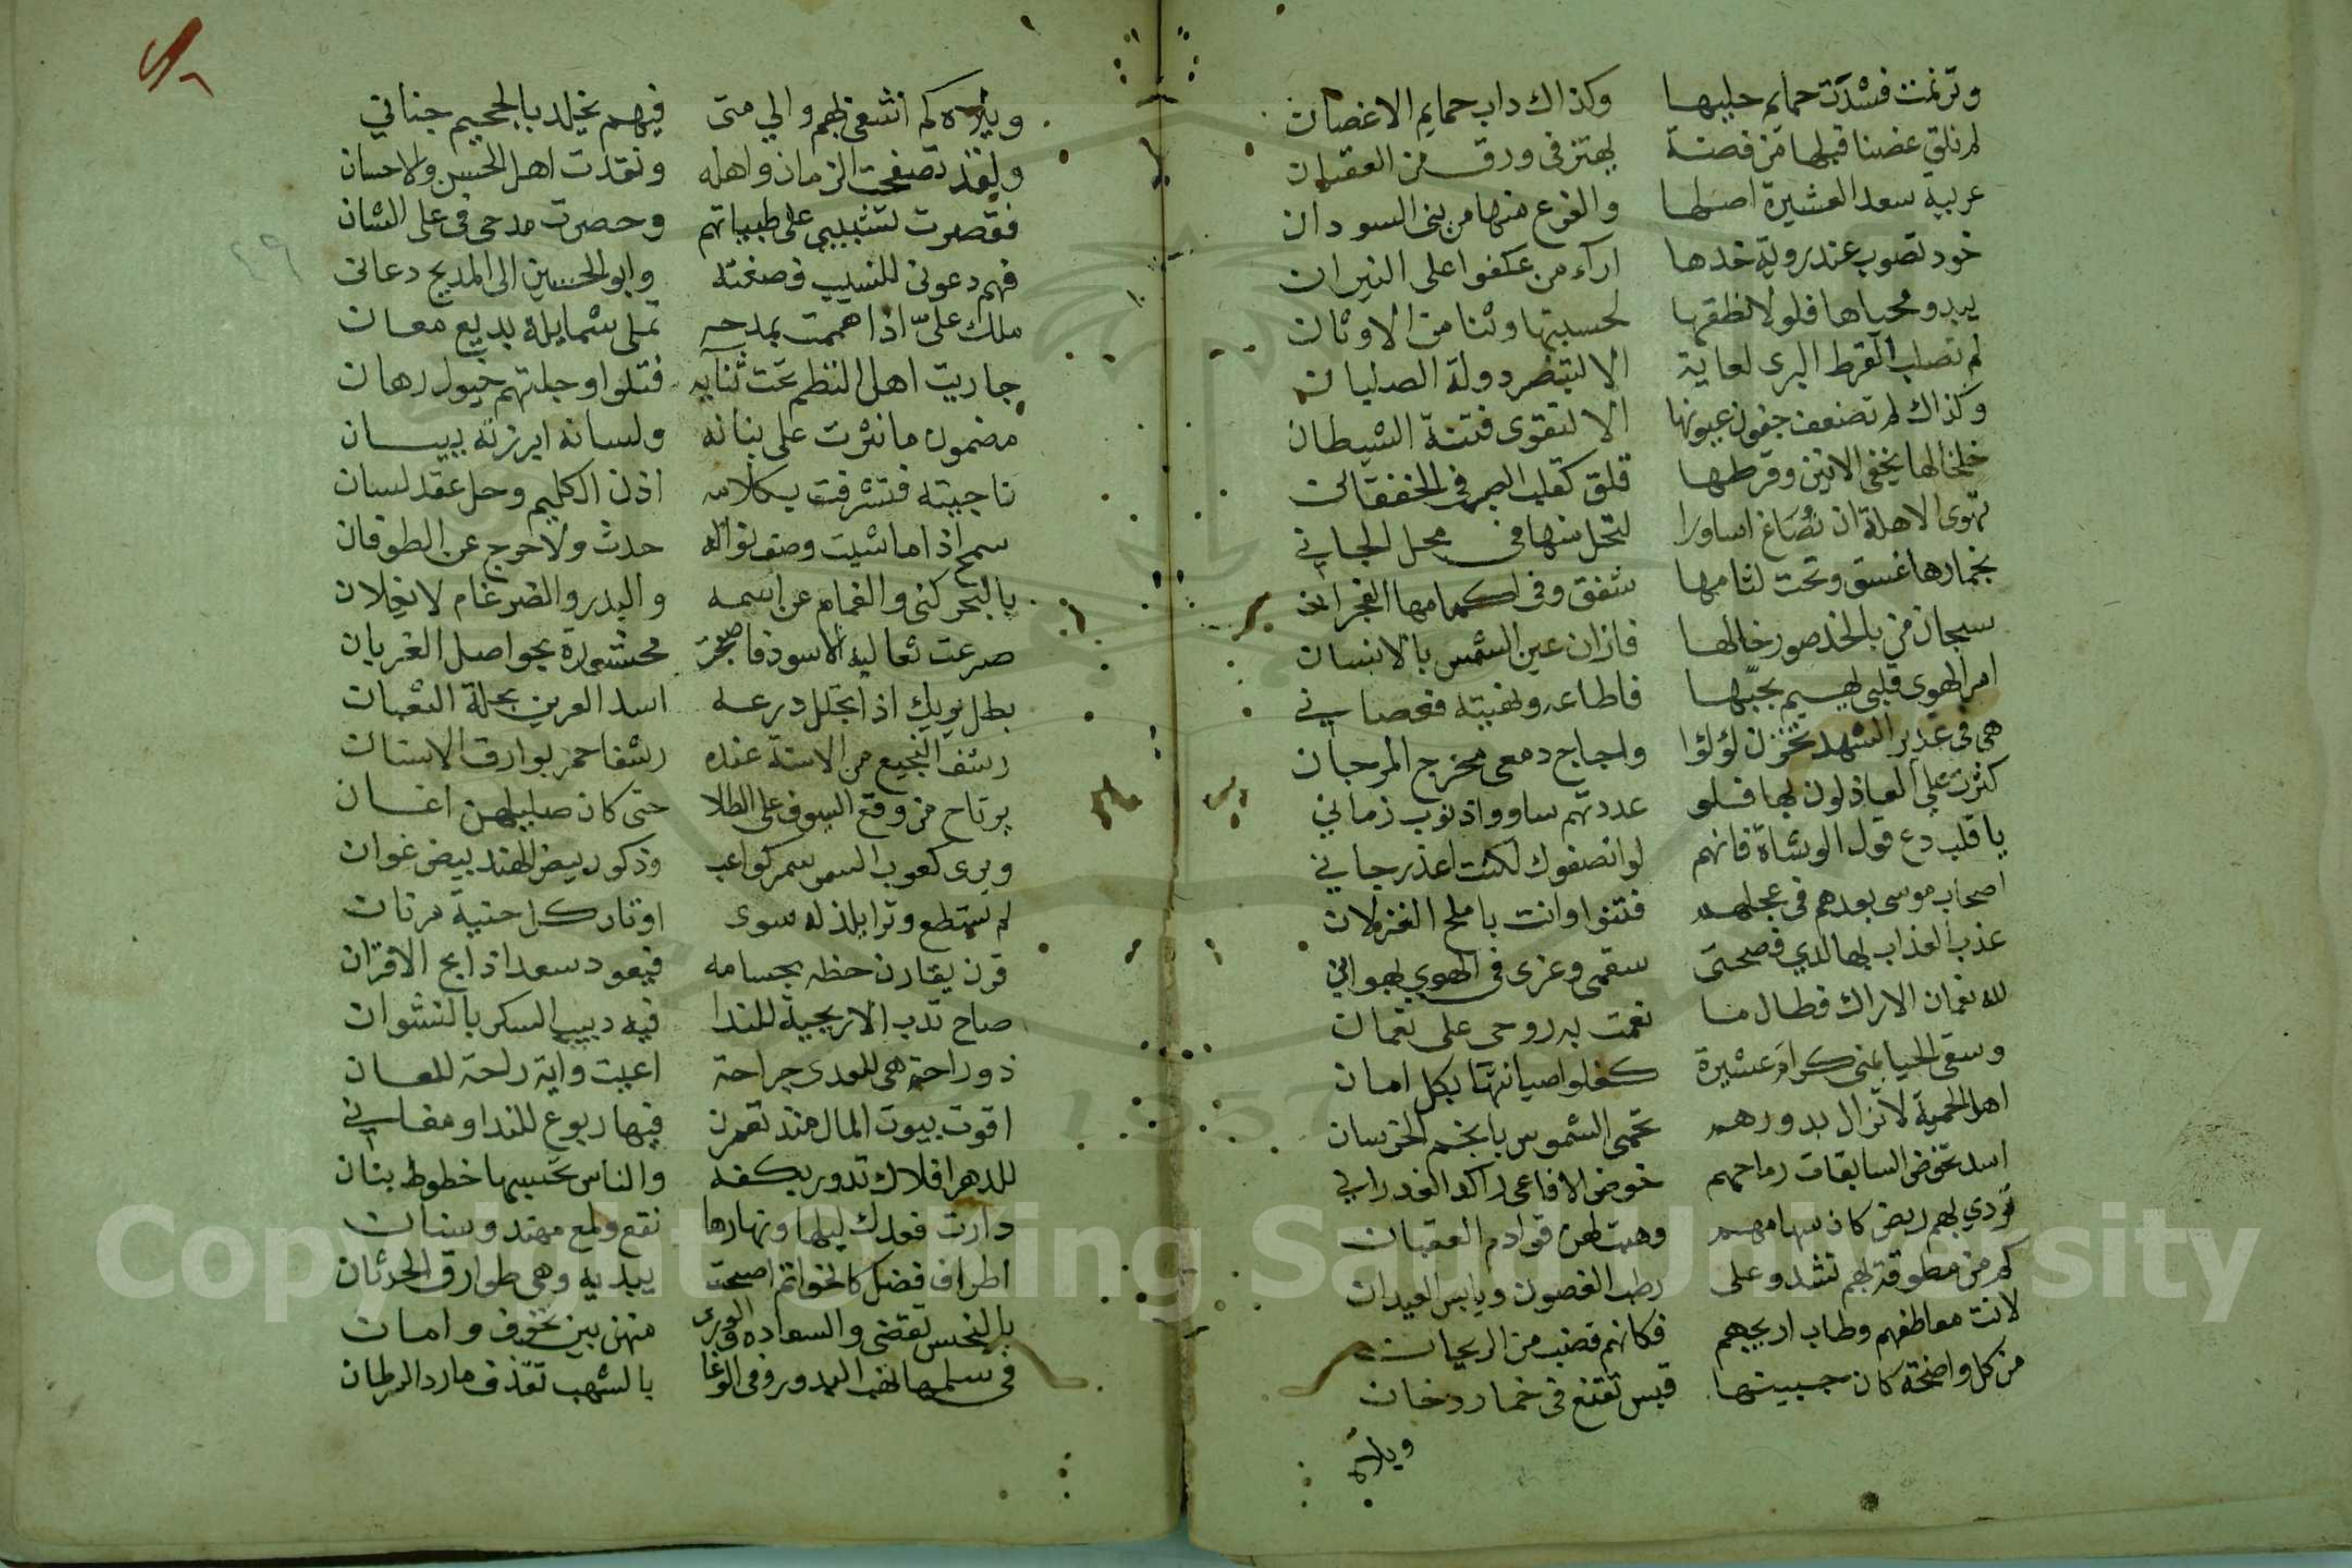 وترنمت فشدت حمايم حليها وكذاك داب حمايم الاغصان
لم نلق غصنا قبلها من فضة يهتز في ورق من العقيان
عربية سعد العشيرة اصلها والفرع منها من بني السودان
خود تصوب عند روية خدها اراء من عكفوا على النيران
يبدو محياها فلولا نطقها لحسبتها وثنا من الاوثان
لم تصلب القرط البري لغاية الا لتنصر دولة الصلبان
وكذاك لم تضعف جفون عيونها الا لتقوى فتنة الشيطان
خلخالها يخفي الانين وقرطها قلق كقلب الصب في الخفقان
تهوى الاهلة ان تصاغ اساورا لتحل منها في محل الجاني
بخمارها غسق وتحت لثامها شفق وفي اكمامها الفجران
سبحان من بالخد صور خالها فازان عين الشمس بالانسان
امر الهوى قلبي يهيم بحبها فاطاعه ونهيته فعصاني
هي في غدير الشهد تخزن لؤلؤا واجاج دمعي مخرج المرجان
كثرت علي العاذلون بها فلو عددتهم ساووا ذنوب زماني
يا قلب دع قول الوشاة فانهم لو انصفوك لكنت اعذر جاني
اصحاب موسى بعدهم في عجلهم فتنوا وانت باملح الغزلان
عذب العذاب بها لدي فصحتي سقمي وعزي في الهوي بهواني
لله نعمان الاراك فطال ما نعمت به روحي على نعمان
وسقى الحيا مني كرام عشيرة كفلوا صيانتها بكل امان
اهل الحمية لا تزال بدورهم تحمي الشموس بانجم الخرسان
اسد تخوض السابقات رماحهم خوض الافاعي راكد الغدراني
تودي بهم ربض كان سهامهم وهبت لهن قوادم العقبان
كم من مطوقة لهم تشدو على رطب الغصون ويابس العيدان
لانت معاطفهم وطاب اريجهم فكانهم قضب من الريحان
من كل واضحة كان جبينها قبس تقنع في خمار دخان
ويلاه
ويلاه كم اشقى بهم والي متى فيهم يخلد بالجحيم جناني
ولقد تصفحت الزمان واهله ونقدت اهل الحسن والاحسان
فقصرت تشبيبي على ظبياتهم وحصرت مدحي في على الشان
فهم دعوني للنسيب فصغته وابو الحسين الى المديح دعاني
ملك علي اذا هممت بمدحه تملى شمايله بديع معان
جاريت اهل النظم تحت ثنايه فتلوا وجلتهم خيول رهان
مضمون ما نثرت على بنانه ولسانه ابرزته ببيان
ناجيته فتشرفت بكلامه اذن الكليم وحل عقد لسان
سمح اذا ما شيت وصف نواله حدث ولا حرج عن الطوفان
بالبحر كنى والغمام عن اسمه والبدر والضرغام لا بفلان
صرعت ثعالبه الاسود فاصبحت محشورة بحواصل الغربان
بطل يريك اذا تجلل درعه اسد العرين بحلة الثعبان
رشف النجيع من الاسنة عنده رشفا حمر بوارق الاسنان
يرتاح من وقع السيوف على الطلا حتى كان صليلهن اغان
ويرى كعوب السمر سمر كواعب وذكور بيض الهند بيض غوان
لم يستطع وترا يلذ له سوى اوتار كل حنية مرنان
قرن يقارن حظه بحسامه فيعود سعدا ذابح الاقران
صاح تدب الاريحية للندا فيه دبيب السكر بالنشوان
ذو راحة هي للعدى جراحة اعيت واية راحة للعان
اقوت بيوت المال منذ تعمرن فيها ربوع للندا ومغاني
للدهر افلاك تدور بكفه والناس تحسبها خطوط بنان
دارت فعدك ليلها ونهارها نقع ولمع مهند وسنان
اطراف فضل كالخواتم اصبحت بيديه وهي طوارق الحدثان
بالنحس تقضي والسعادة في الورى منهن بين تخوف وامان
في سلمها تهب البدور وفي الوغا بالشهب تقذف مارد المران